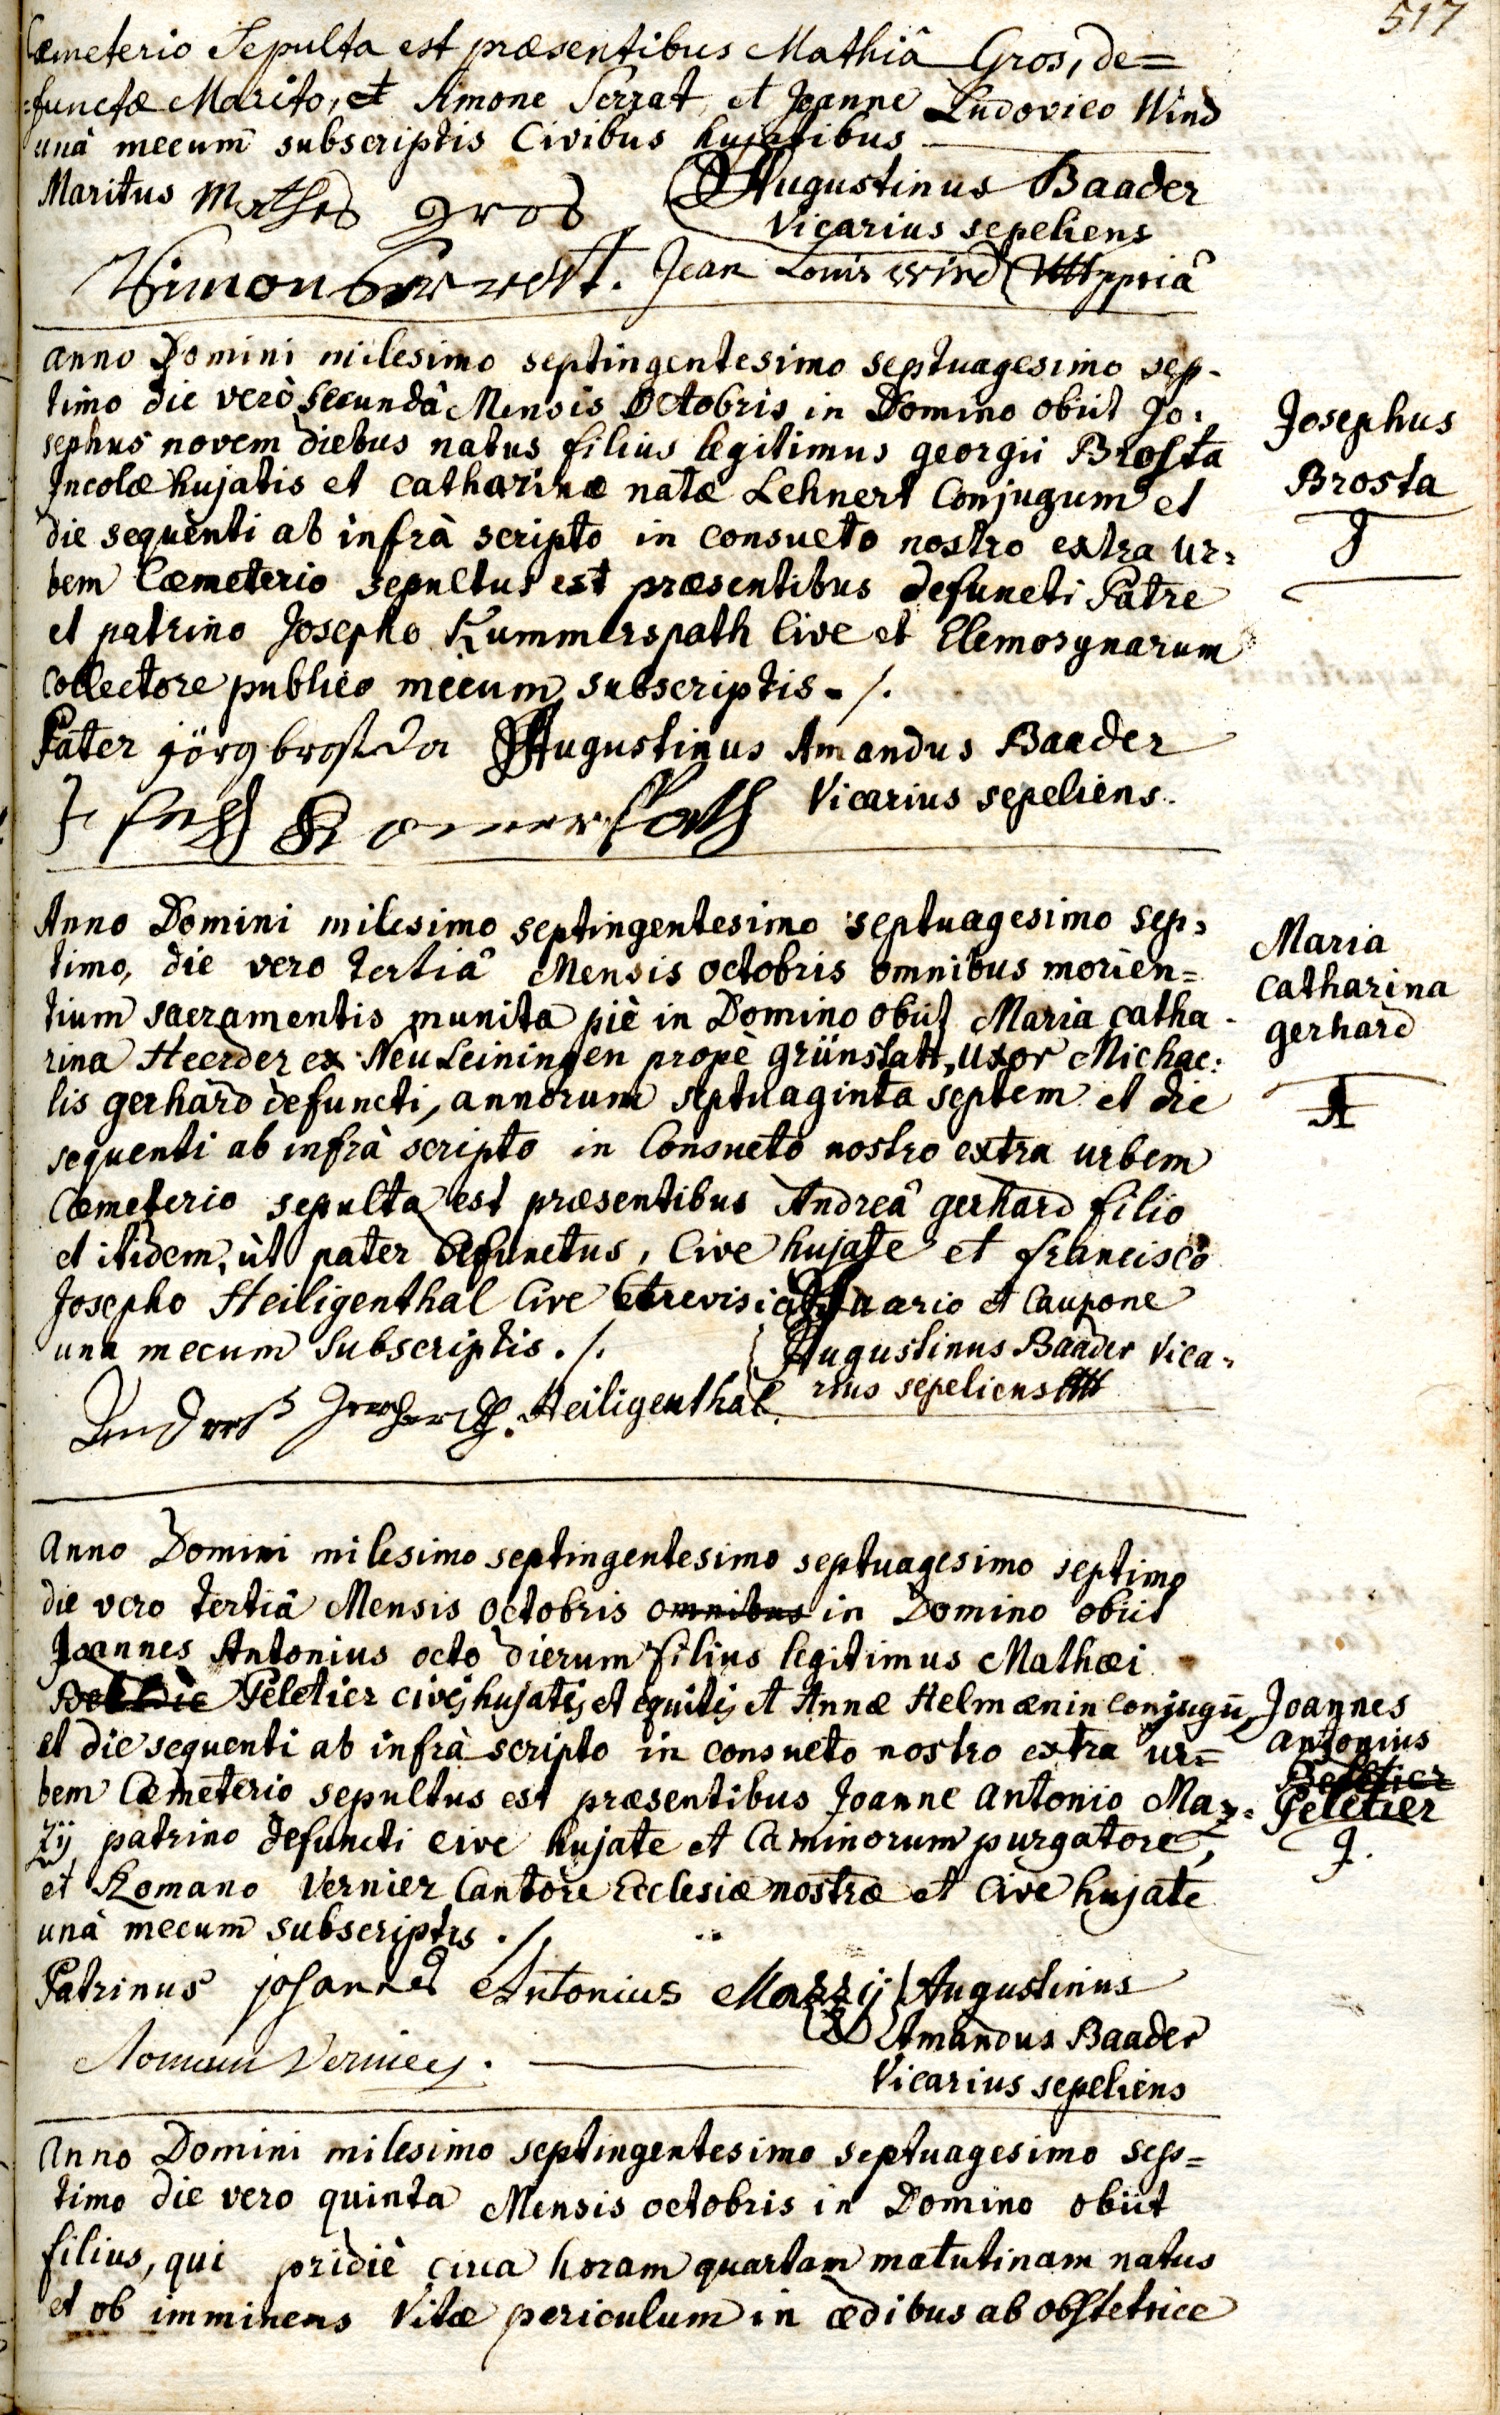 517
Cæmeterio Sepulta est præsentibus Mathiâ Gros, de=
=functæ Marito, et Simone Serrat, et Joanne Ludovico Wind
unà mecum subscriptis Civibus hujatibus
Maritus Mathes gros
Augustinus Baader
Vicarius sepeliens
Simon Jean Louis Wind ppriâ
anno Domini milesimo septingentesimo septuagesimo sep-
timo die verò secundâ Mensis Octobris in Domino obiit Jo:
sephus novem diebus natus filius legitimus georgii Brosta
Incolæ hujatis et catharinæ natæ Lehnert Conjugum et
die sequenti ab infrà scripto in consueto nostro extra ur=
bem Cæmeterio sepultus est præsentibus defuncti Patre
et patrino Josepho Kummerspath Cive et Elemosynarum
collectore publico mecum subscriptis - /.
Josephus
Brosta
Pater görg brosta Augustinus Amandus Baader
Vicarius sepeliens.
Anno Domini milesimo septingentesimo septuagesimo sep=
timo, die vero tertiâ Mensis octobris omnibus morien=
tium sacramentis munita piè in Domino obiit Maria catha-
rina Heerder ex Neu Leiningen propè grünstatt, uxor Michae:
lis gerhard defuncti, annorum septuaginta septem et die
sequenti ab infrà scripto in Consueto nostro extra urbem
Cæmeterio sepulta est præsentibus Andreâ gerhard filio
et itidem, ùt pater defunctus, Cive hujate et francisco
Josepho Heiligenthal Cive Cerevisiario et Caupone
una mecum Subscriptis . /.
Maria
Catharina
gerhard
Augustinus Baader Vica=
rius sepeliens
Heiligenthal.
anno Domini milesimo septingentesimo septuagesimo septimo
die vero tertiâ Mensis octobris omnibus in Domino obiit
Joannes Antonius octo dierum filius legitimus Mathæi
Peletier civis hujatis et equitis et Annæ Helmænin conjugū
et die sequenti ab infrà scripto in consueto nostro extra ur=
bem Cæmeterio sepultus est præsentibus Joanne antonio Maz=
zij patrino defuncti cive hujate et Caminorum purgatore,
et Romano Vernier Cantore Ecclesiæ nostræ et Cive hujate
unà mecum subscriptis . /.
Joannes
antonius
Peletier
Patrinus johannes Antonius Mazzij Augustinus
Amandus Baader
Vicarius sepeliens
Roman Vernier.
anno Domini milesimo septingentesimo septuagesimo sep=
timo die vero quinta Mensis octobris in Domino obiit
filius, qui pridiè circa horam quartam matutinam natus
et ob imminens Vitæ periculum in ædibus ab obstetrice